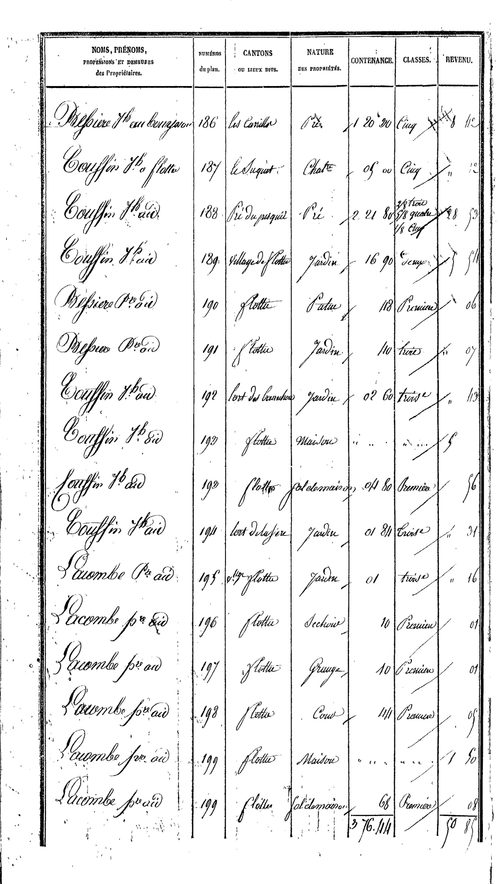 NOMS, PRÉNOMS, PROFESSIONS ET DEMEURES des Propriétaires. NUMÉROS du plan. CANTONS OU LIEUX DITS. NATURE DES PROPRIÉTÉS. CONTENANCE. CLASSES. REVENU.
Bessiere Jh 186 Pré 1 20 20 Cinq 8 42
Couffin Jh a flotte 187 Chate 05 00 Cinq
Couffin Jh aid 188 Pré 2 21 80 2/8 trois 5/8 quatre 1/8 Cinq 28 53
Couffin Jh aid 189 village de flotte Jardin 16 90 5 54
Bessiere Pre aid 190 flotte Patus 48 Premiere 06
Bessiere Pre aid 191 flotte Jardin 40 trois " 07
Couffin Jh aid 192 Jardin 02 60 troise " 43
Couffin Jh aid 193 flotte Maison " " " " 5
Couffin Jh aid 193 flotte Sol de maison 04 80 Premiere 56
Couffin Jh aid 194 Jardin 01 84 troise " 31
Lacombe Pre aid 195 flotte Jardin 01 troise " 16
Lacombe pre aid 196 flotte 10 Premiere 01
Lacombe pre aid 197 flotte Grange 40 Premiere 01
Lacombe pre aid 198 flotte Cour 44 Premiere 05
Lacombe pre aid 199 flotte Maison " " " " 1 50
Lacombe pre aid 199 flotte Sol de maison 68 Premiere 08
3 76.44 50 85